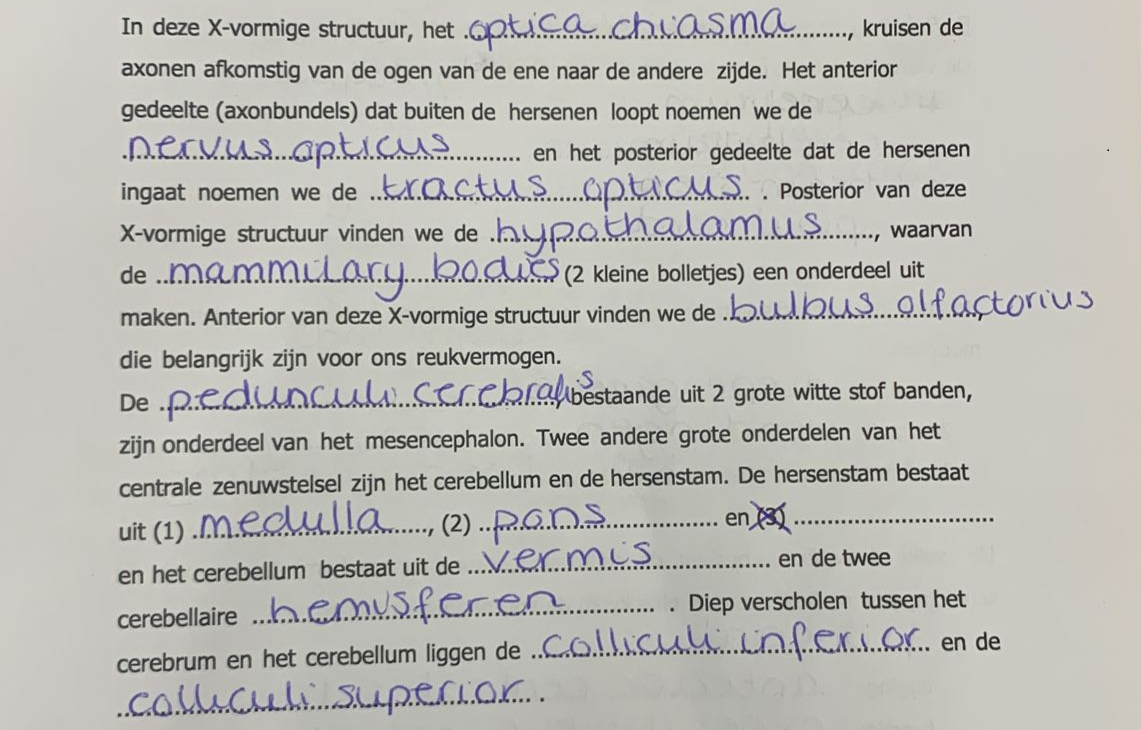 In deze X-vormige structuur, het optica chiasma, kruisen de
axonen afkomstig van de ogen van de ene naar de andere zijde. Het anterior
gedeelte (axonbundels) dat buiten de hersenen loopt noemen we de
nervus opticus en het posterior gedeelte dat de hersenen
ingaat noemen we de tractus opticus. Posterior van deze
X-vormige structuur vinden we de hypothalamus, waarvan
de mammilary bodies (2 kleine bolletjes) een onderdeel uit
maken. Anterior van deze X-vormige structuur vinden we de bulbus olfactorius
die belangrijk zijn voor ons reukvermogen.
De pedunculi cerebralis, bestaande uit 2 grote witte stof banden,
zijn onderdeel van het mesencephalon. Twee andere grote onderdelen van het
centrale zenuwstelsel zijn het cerebellum en de hersenstam. De hersenstam bestaat
uit (1) medulla, (2) pons en (3)
en het cerebellum bestaat uit de vermis en de twee
cerebellaire hemisferen. Diep verscholen tussen het
cerebrum en het cerebellum liggen de colliculi inferior en de
colliculi superior.